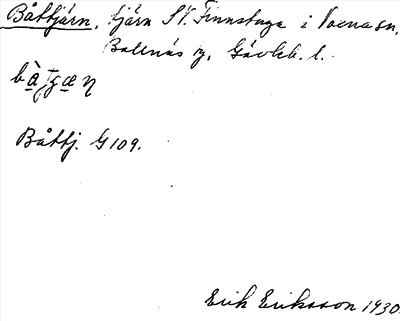 Båttjärn, tjärn SV. Finnstuga i Voxna sn,
Bollnäs z, Gävleb. l.
Båttj. G 109.
Erik Eriksson 1930.